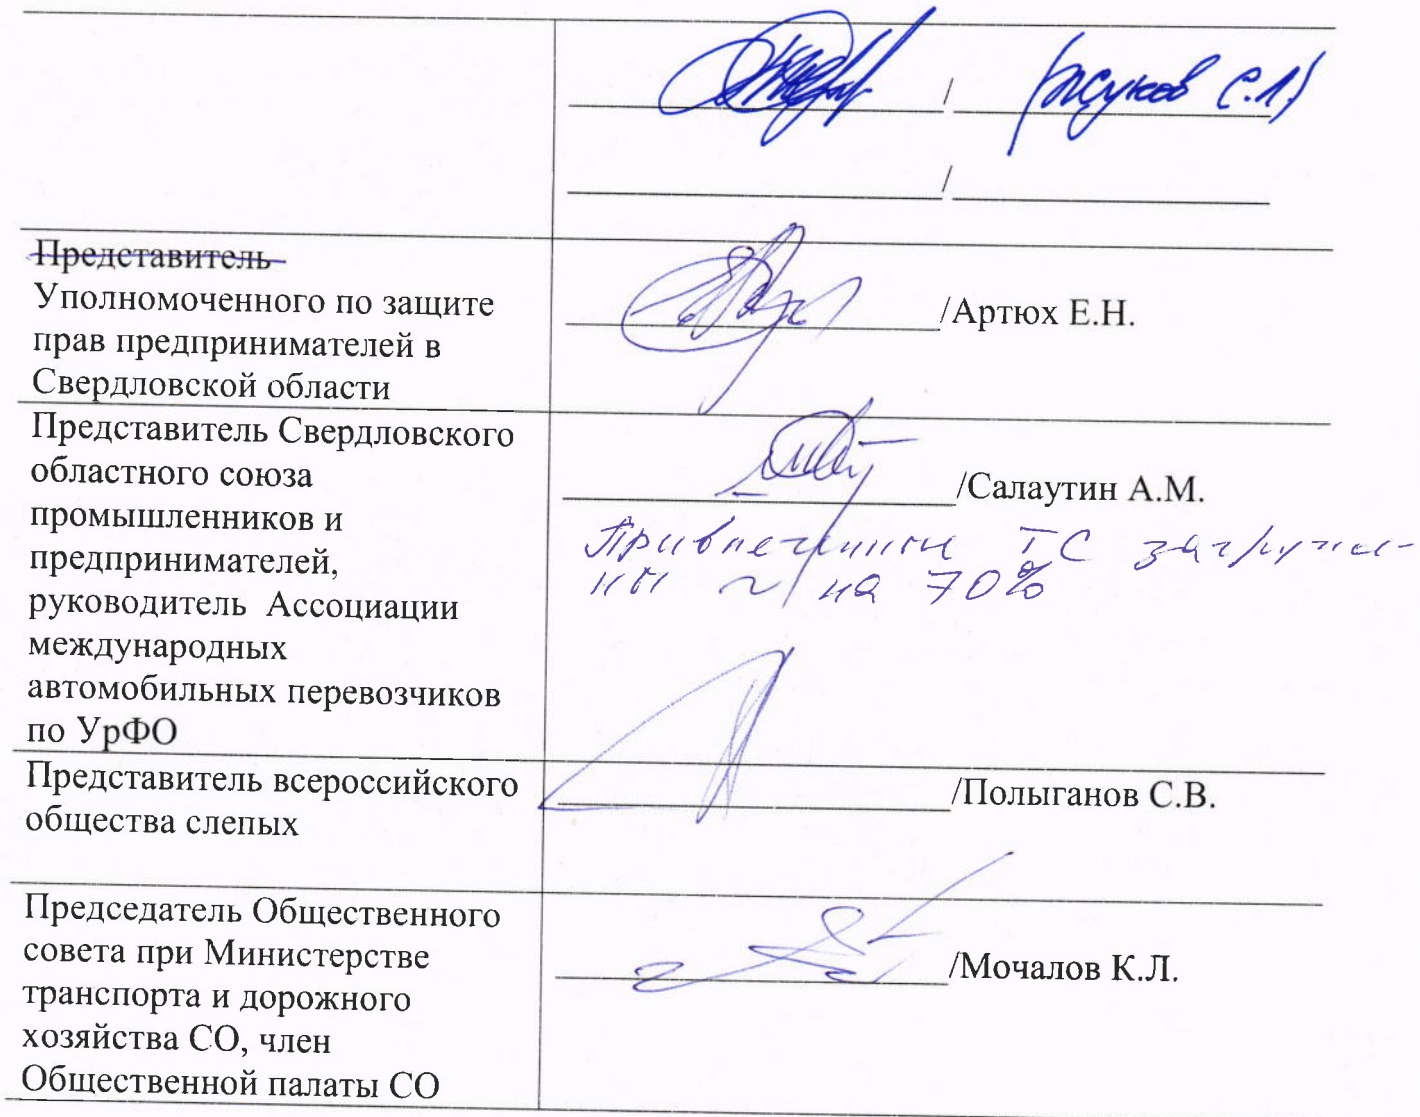 / С.Л.)
/
Представитель
Уполномоченного по защите
прав предпринимателей в
Свердловской области
/Артюх Е.Н.
Представитель Свердловского
областного союза
промышленников и
предпринимателей,
руководитель Ассоциации
международных
автомобильных перевозчиков
по УрФО
/Салаутин А.М.
ТС
ны ~ на 70%
Представитель всероссийского
общества слепых
/Полыганов С.В.
Председатель Общественного
совета при Министерстве
транспорта и дорожного
хозяйства СО, член
Общественной палаты СО
/Мочалов К.Л.